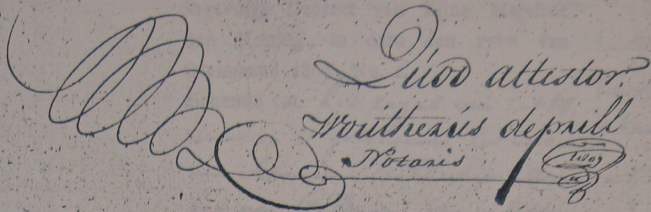 Quod attestor.
Woutherus deprill
Notaris